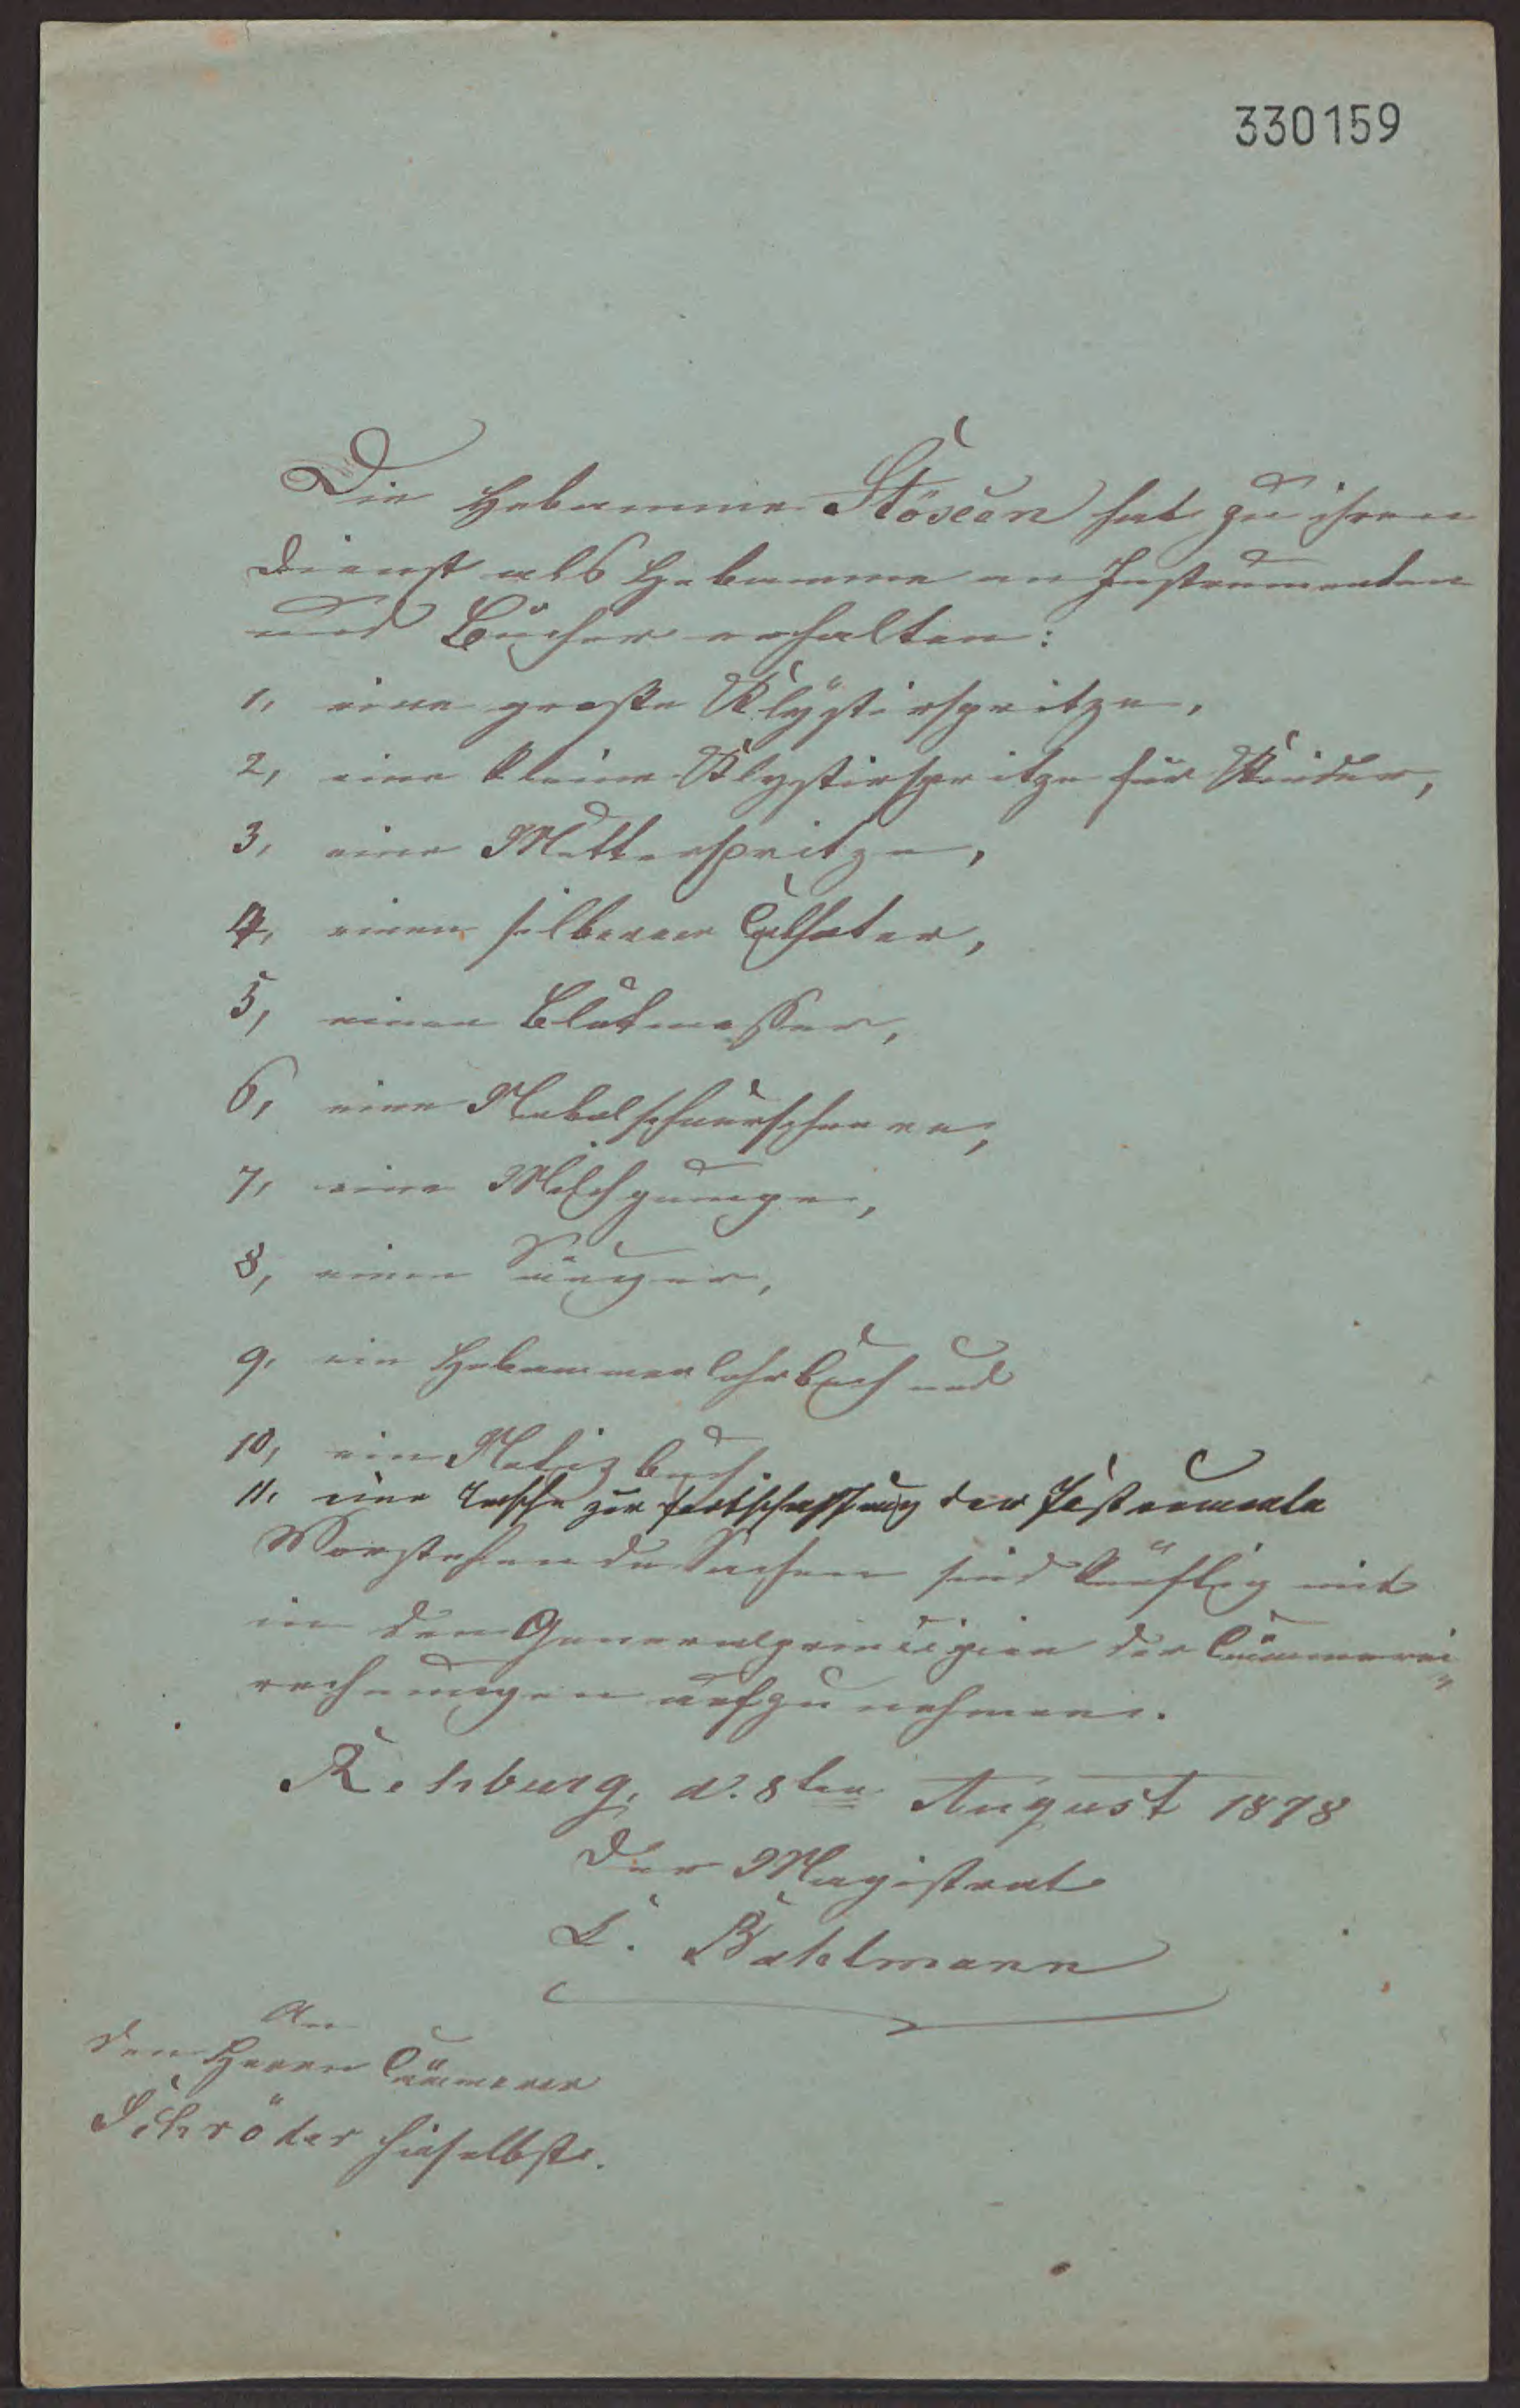 330159
Die Hebamme Stöxen hat zu ihren
Dienst als Hebamme an Instrumenten
und Bücher erhalten:
1, eine große Klÿstirspritze,
2, eine kleine Klystirspritze für Kinder,
3, eine Mutterspritze,
4, einen silbernen Catheter,
5, einen Blutmesser,
6, eine Nabelschnurscheere,
7, eine Milchpumpe,
8, einen Sauger,
9, ein Hebammenlehrbuch und
10, ein Notizbuch
11, eine Tasche zur Fortschaffung der Instrumente
Vorstehende Sachen sind künftig mit
in den Generalprincipien der Cämmerei
rechnungen aufzunehmen.
Rehburg, d. 8ten August 1878
Der Magistrat
Bahlmann
An
den Herrn Cämmerer
Schröder hieselbst.